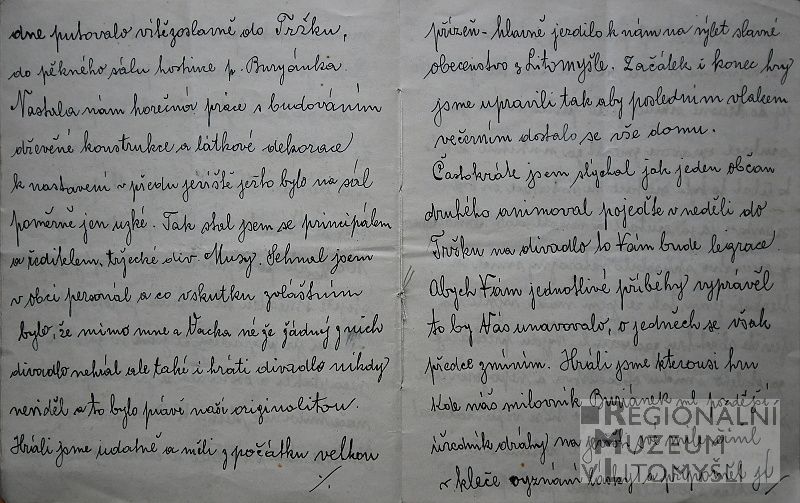 dne putovalo vítězoslavně do Tržku,
do pěkného sálu hostince p. Buryánka.
Nastala nám horečná práce s budováním
dřevěné konstrukce a látkové dekorace
k nastavení v předu jeviště ježto bylo na sál
poměrně jen uzké. Tak stal jsem se principálem
a ředitelem tržecké div. Musy. Sehnal jsem
v obci personál a co vskutku zvláštním
bylo, že mimo mne a Vacka né že žádný z nich
divadlo nehrál ale také i hráti divadlo nikdy
neviděl a to bylo právě naší originalitou.
Hráli jsme udatně a měli z počátku velkou
·/.
přízeň - hlavně jezdilo k nám na výlet slavné
obecenstvo z Litomyšle. Začátek i konec hry
jsme upravili tak aby posledním vlakem
večerním dostalo se vše domu.
Častokráte jsem slýchal jak jeden občan
druhého animoval pojeďte v neděli do
Tržku na divadlo to Vám bude legrace.
Abych Vám jednotlivé příběhy vyprávěl
to by Vás unavovalo, o jedněch se však
předce zmíním. Hráli jsme kterousi hru
kde náš milovník Buriánek ml. později
úředník dráhy na
v kleče vyznání lásky a
REGIONÁLNÍ
MUZEUM
V LITOMYŠLI